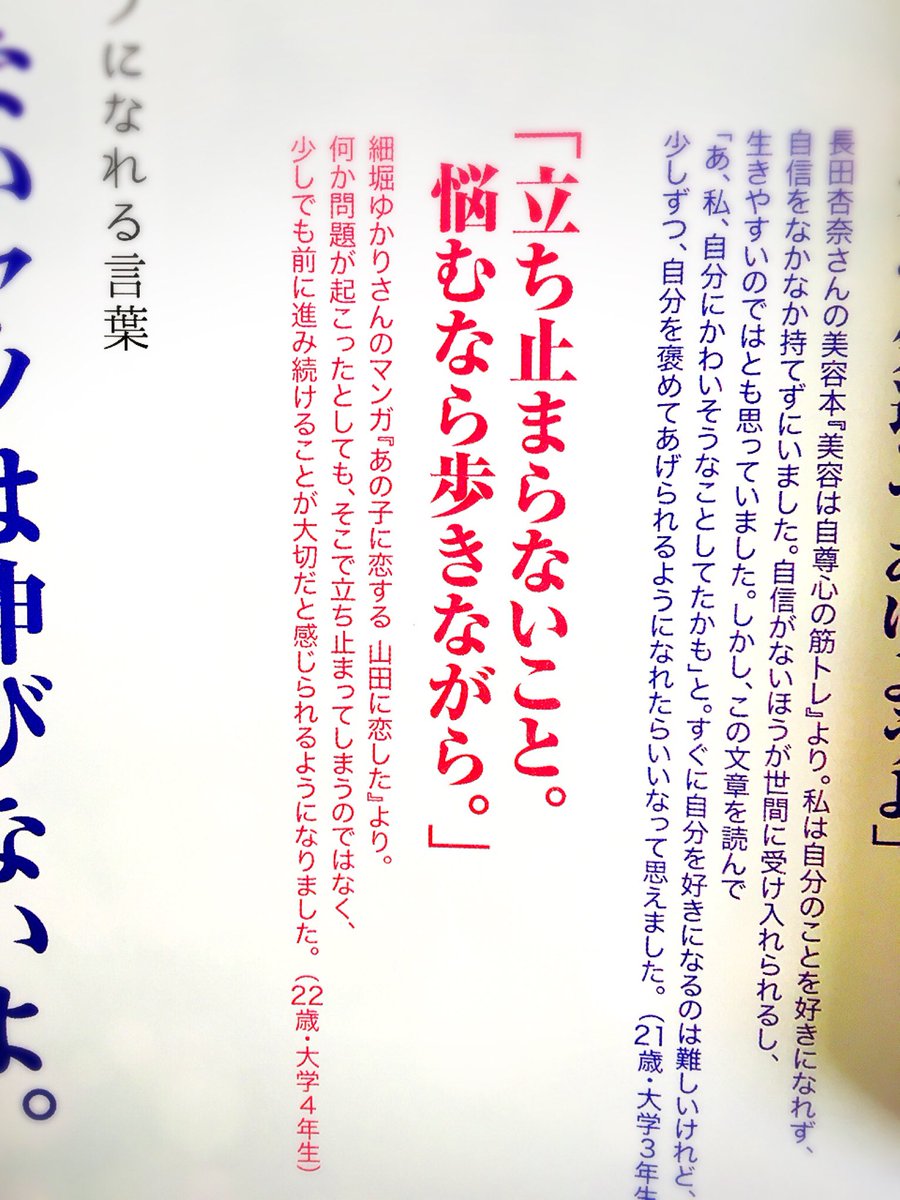 長田杏奈さんの美容本『美容は自尊心の筋トレ』より。私は自分のことを好きになれず、
自信をなかなか持てずにいました。自信がないほうが世間に受け入れられるし、
生きやすいのではとも思っていました。しかし、この文章を読んで
「あ、私、自分にかわいそうなことしてたかも」と。すぐに自分を好きになるのは難しいけれど、
少しずつ、自分を褒めてあげられるようになれたらいいなって思えました。(21歳・大学3年生
「立ち止まらないこと。
悩むなら歩きながら。」
細堀ゆかりさんのマンガ『あの子に恋する 山田に恋した』より。
何か問題が起こったとしても、そこで立ち止まってしまうのではなく、
少しでも前に進み続けることが大切だと感じられるようになりました。(22歳・大学4年生)
になれる言葉
は伸びないよ。